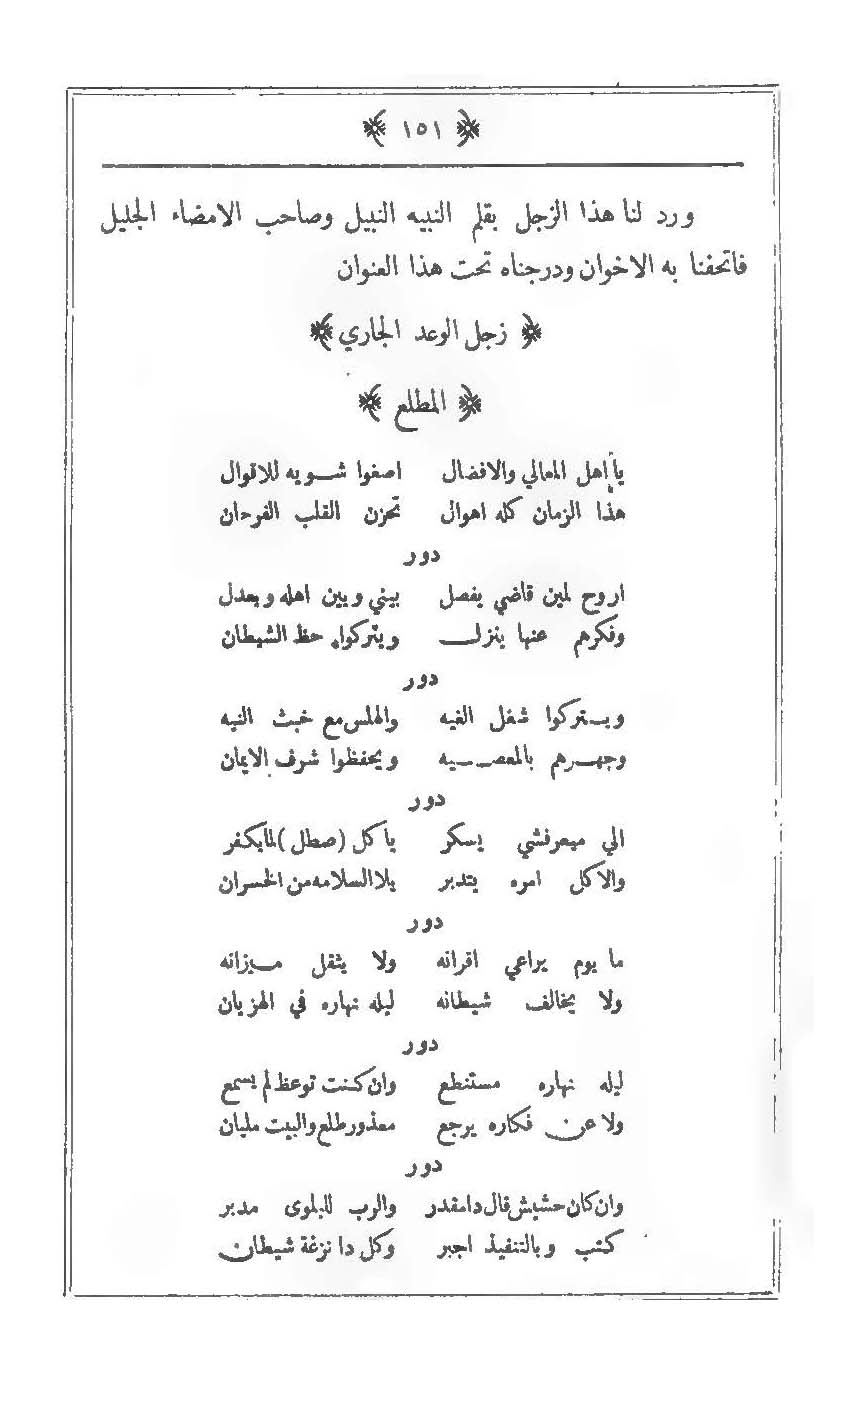 ﴿ ١٥١ ﴾
ورد لنا هذا الزجل بقلم النبيه النبيل وصاحب الامضاء الجليل
فاتحفنا به الاخوان ودرجناه تحت هذا العنوان
﴿ زجل الوعد الجاري ﴾
﴿ المطلع ﴾
ياأهل المعالي والافضال اصغوا شويه للاقوال
هذا الزمان كله اهوال تحزن القلب الفرحان
دور
اروح لمين قاضي يفصل بيني وبين اهله وبعدل
وفكرهم عنها ينزل ويتركوا حظ الشيطان
دور
ويستركوا شغل الغيه والهلس مع خبث النيه
وجهرهم بالمعصيه ويحفظوا شرف الايمان
دور
الي ميعرفشي يسكر ياكل (صطل) لمايكفر
والاكل امره يتدبر يلا السلامه من الخسران
دور
ما يوم يراعي اقرانه ولا يثقل ميزانه
ولا يخالف شيطانه ليله نهاره في الهزيان
دور
ليله نهاره مستنطع وان كنت توعظ لم يسمع
ولا عن فكاره يرجع معذور طلع والبيت مليان
دور
وان كان حشيش قال دا مقدر والرب للبلوى مدبر
كتب وبالتنفيذ اجبر وكل دا نزغة شيطان